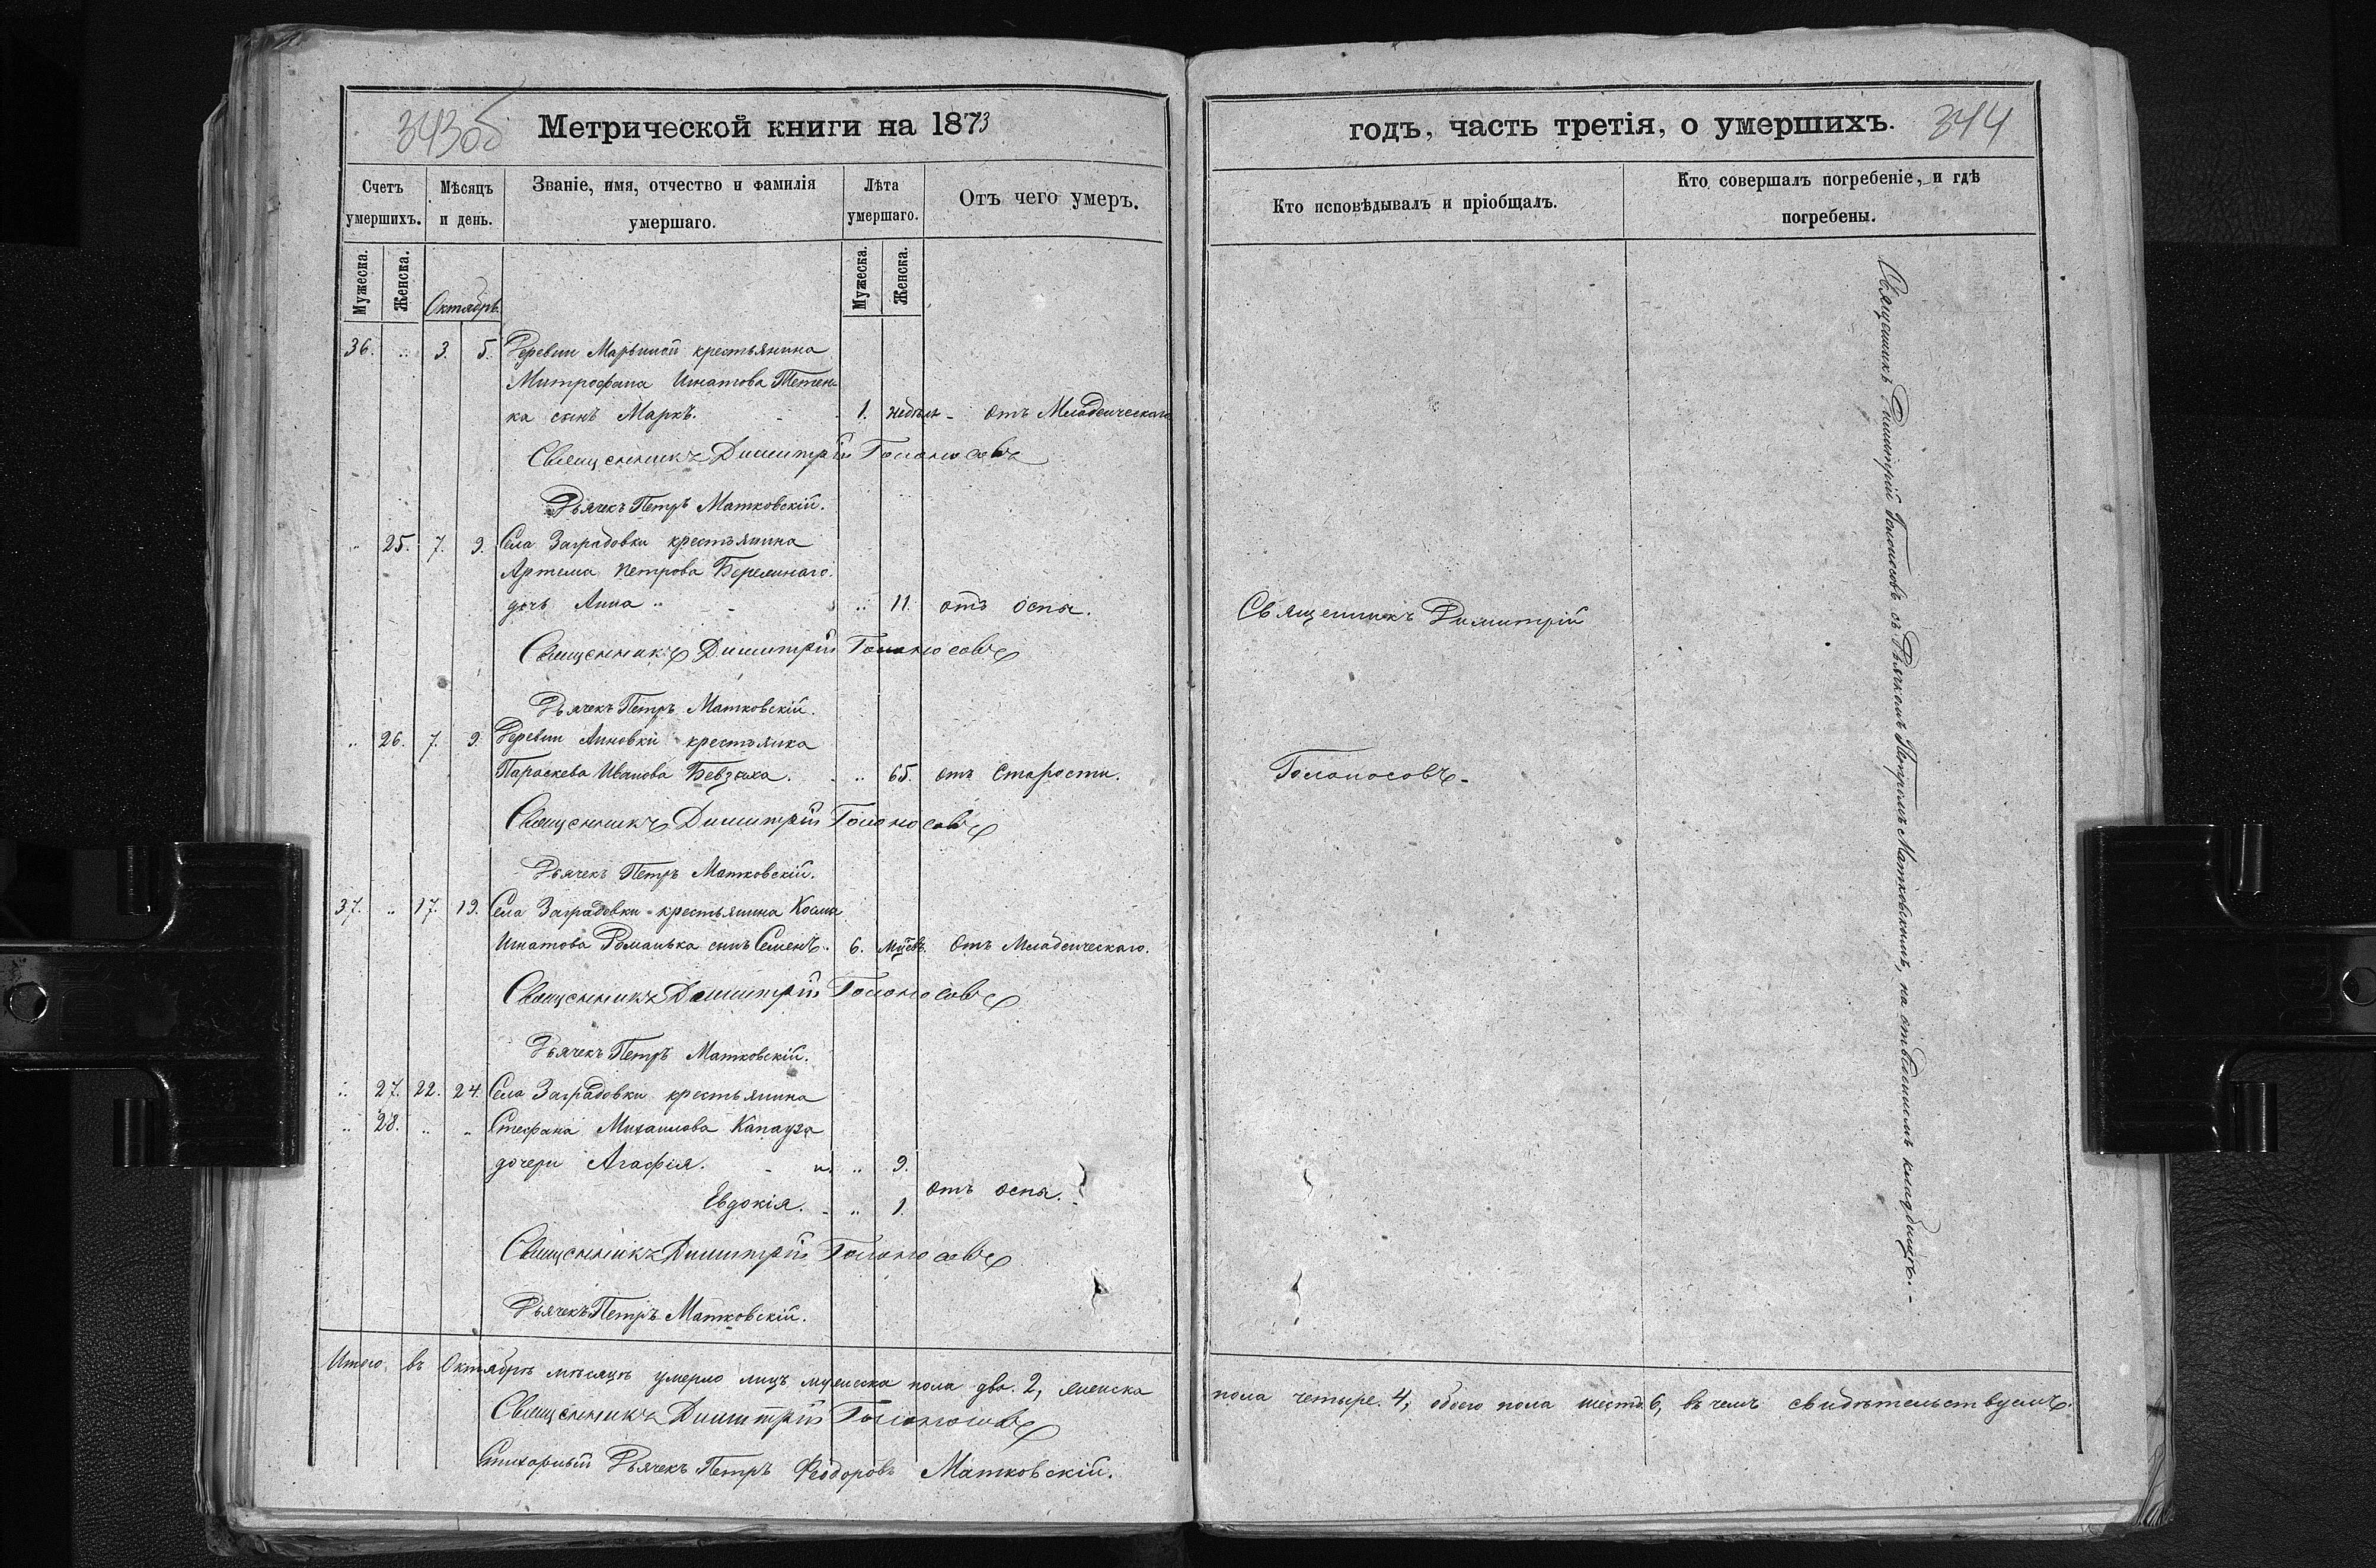 343об
Метрической книги на 1873
Счетъ умершихъ.
Мѣсяцъ и день.
Званіе, имя, отчество и фамилія умершаго.
Лѣта умершаго.
Отъ чего умеръ.
Мужеска.
Женска.
Октябрь.
Мужеска.
Женска.
36. „ 3. 5. Деревни Марьиной крестьянина
Митрофана Игнатова Тетен-
ка сынъ Маркъ. 1. недѣля - отъ Младенческаго
Священникъ Димитрій Голоносовъ
Дьячекъ Петръ Матковскій.
„ 25. 7. 9. Села Заградовки крестьянина
Артема Петрова
дочь Анна „ „ 11. отъ оспы.
Священникъ Димитрій Голоносовъ
Дьячекъ Петръ Матковскій.
„ 26. 7. 9. Деревни Анновки крестьянка
Параскева Иванова Бевзака. „ 65. отъ старости.
Священникъ Димитрій Голоносовъ
Дьячекъ Петръ Матковскій.
37. „ 17. 19. Села Заградовки крестьянина Космы
Игнатова Романька сынъ Семенъ. 6. Отъ Младенческаго.
Священникъ Димитрій Голоносовъ
Дьячекъ Петръ Матковскій.
„ 27. 22. 24. Села Заградовки крестьянина
„ 28. „ „ Стефана Михаилова Капауза
дочери Агафія. - и „ 9.
Евдокія. - „ 1. отъ оспы.
Священникъ Димитрій Голоносовъ
Дьячекъ Петръ Матковскій.
Итого въ Октябрѣ мѣсяцѣ умерло лицъ мужеска пола два. 2, женска
Священникъ Димитрій Голоносовъ
Стихарный Дьячекъ Петръ Феодоровъ Матковскій.
годъ, часть третія, о умершихъ.
344
Кто исповѣдывалъ и пріобщалъ.
Кто совершалъ погребеніе, и гдѣ погребены.
Священникъ Димитрій
Голоносовъ.
Священникъ Димитрій Голоносовъ съ Дьячкомъ Петромъ Матковскимъ, на кладбищѣ.
пола четыре. 4, обоего пола шесть. 6, въ чемъ свидѣтельствуемъ.